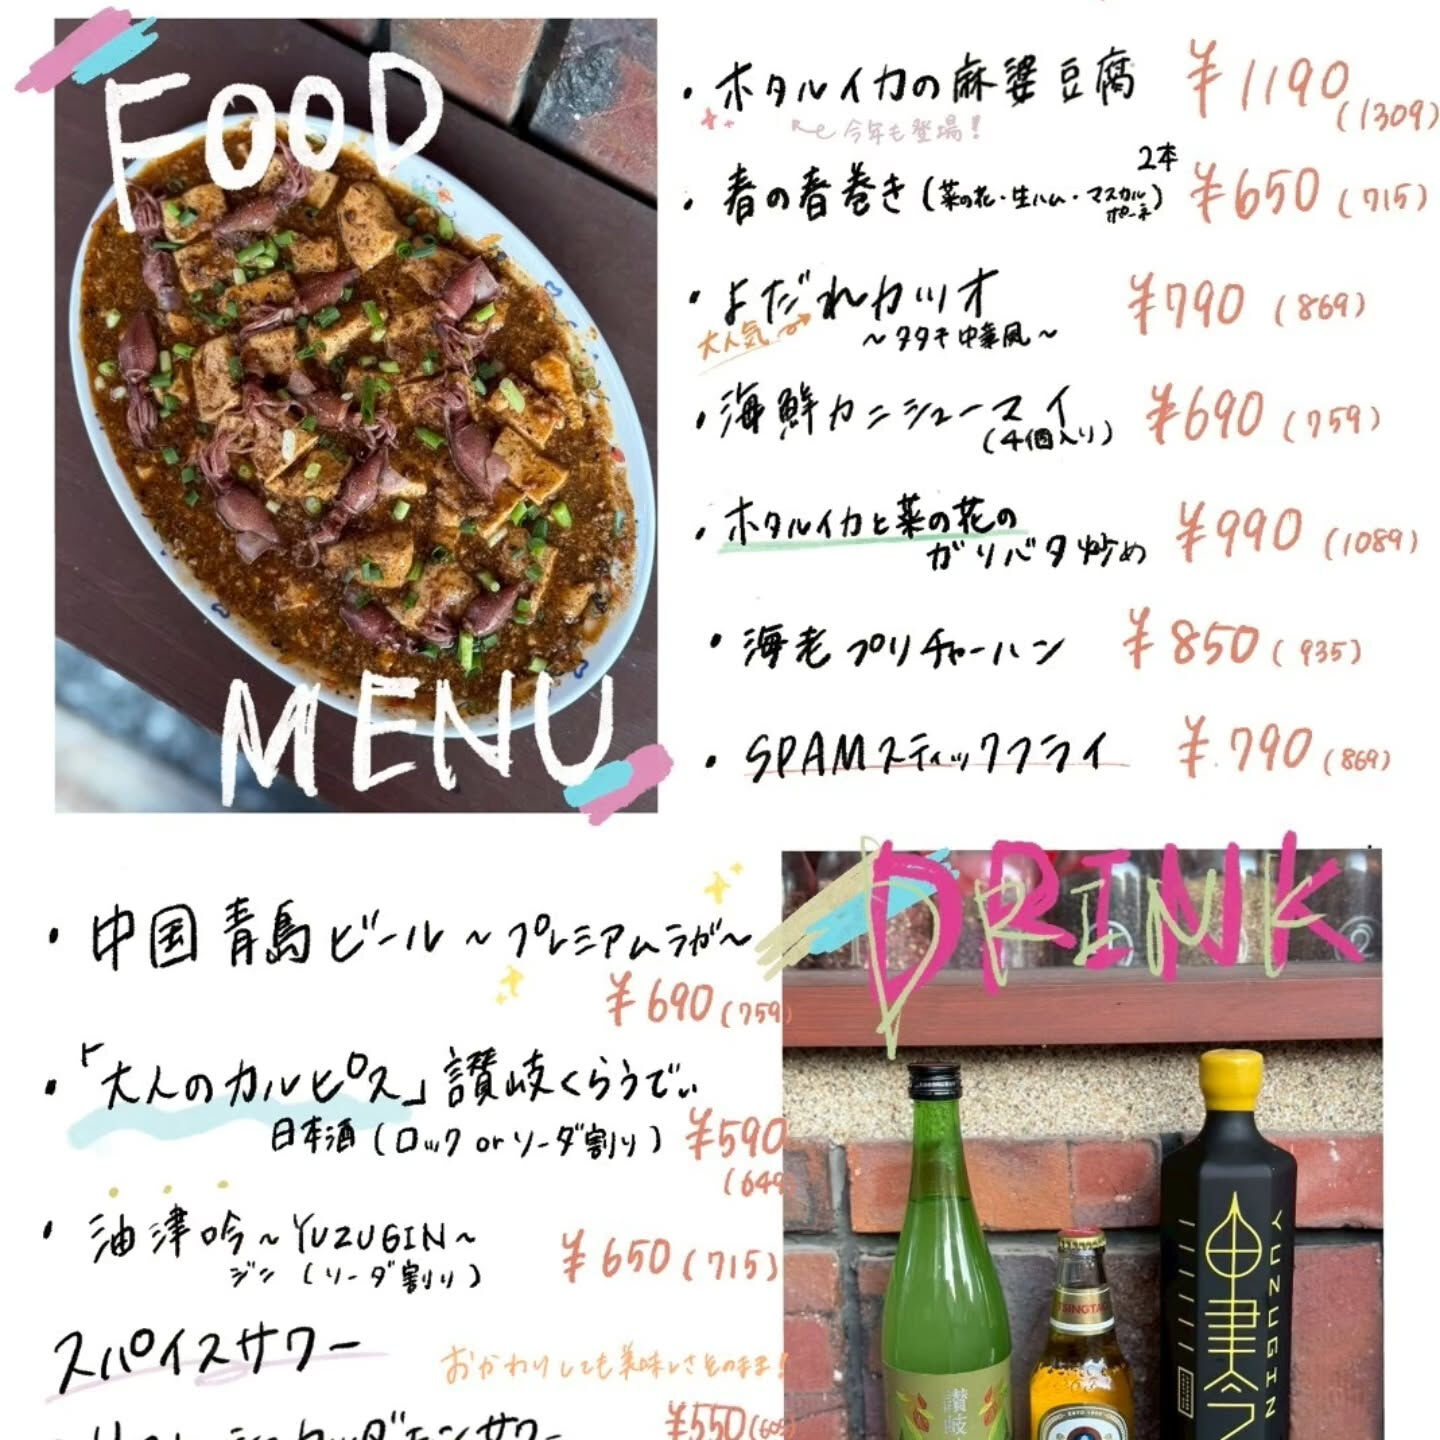 FOOD
MENU
・ホタルイカの麻婆豆腐 ¥1190(1309)
今年も登場!
・春の春巻き(菜の花・生ハム・マスカルポーネ) 2本 ¥650(715)
・よだれカツオ ¥790(869)
大人気 ~タタキ中華風~
・海鮮カニシューマイ ¥690(759)
(4個入り)
・ホタルイカと菜の花の
ガリバタ炒め ¥990(1089)
・海老プリチャーハン ¥850(935)
・SPAMスティックフライ ¥790(869)
DRINK
・中国青島ビール~プレミアムラガ~
¥690(759)
・「大人のカルピス」讃岐くらうでぃ
日本酒(ロック or ソーダ割り) ¥590
(649
・油津吟~YUZUGIN~
ジン(ソーダ割り) ¥650(715)
スパイスサワー
おかわりしても美味しさそのまま!
¥550(605
讃岐
TSINGTAO
YUZUGIN